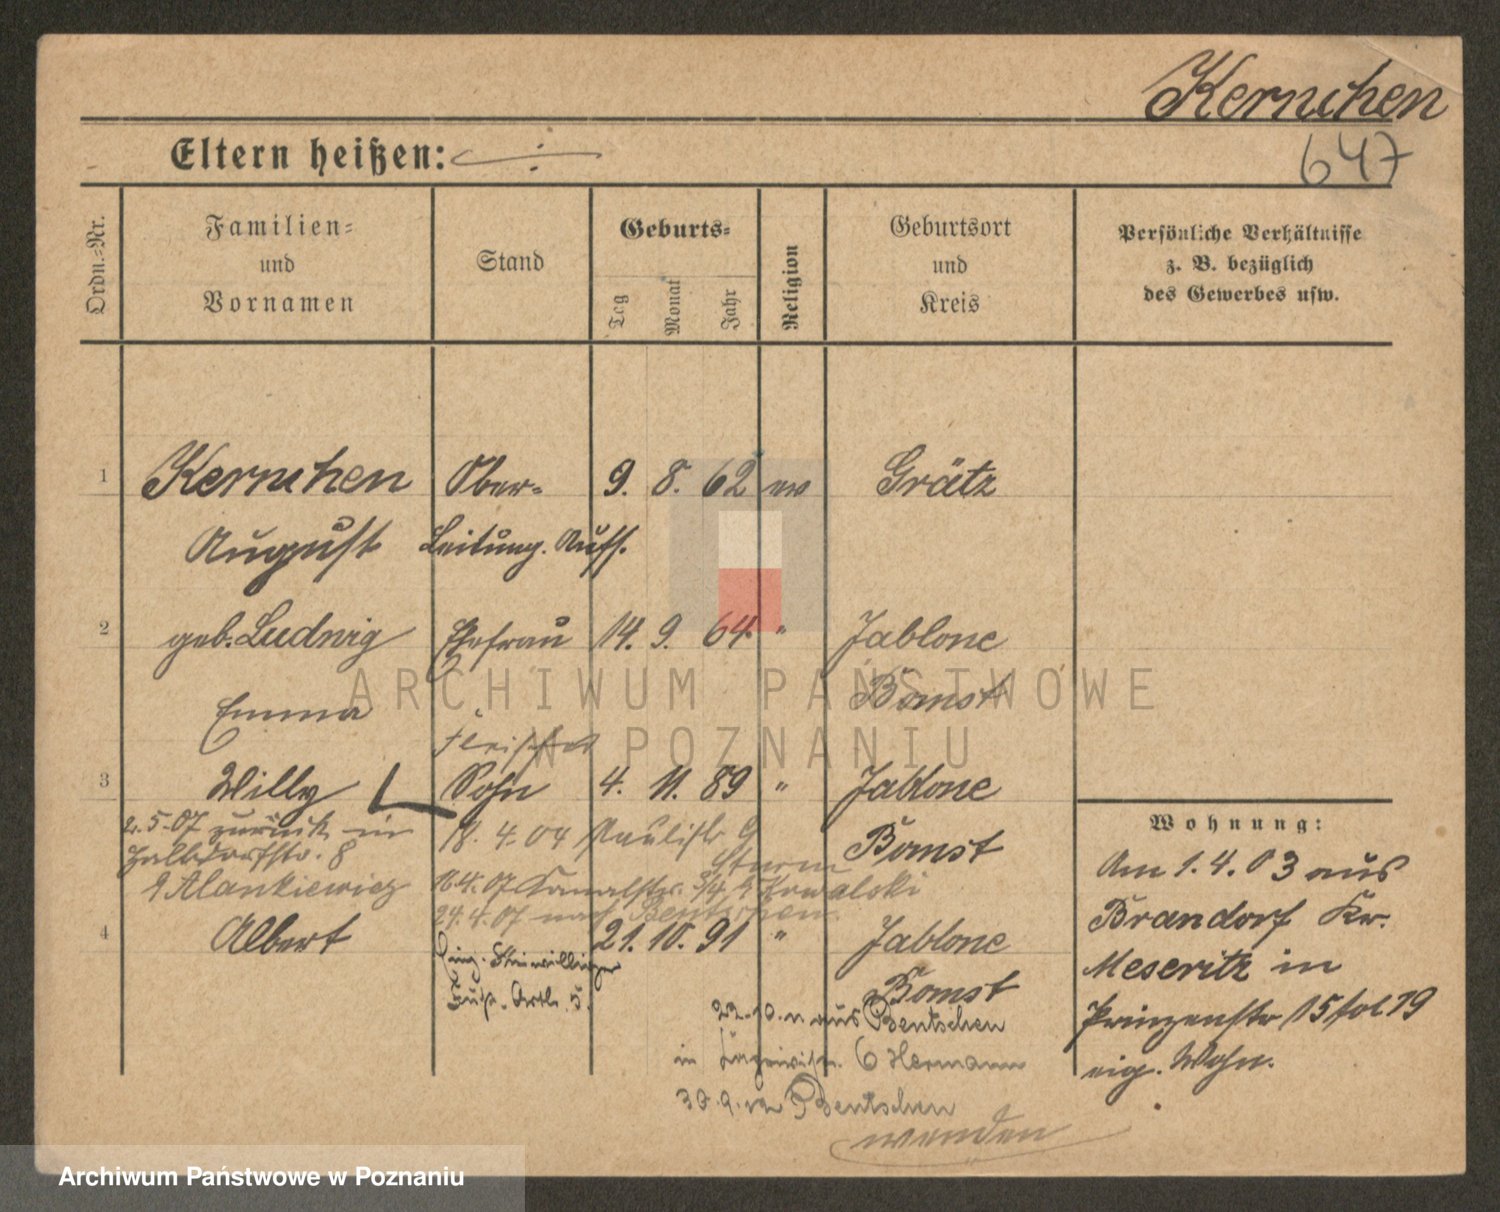 Kernchen
647
Eltern heißen: ÷
Ordn.-Nr.
Familien-
und
Vornamen
Stand
Geburts-
Tag
Monat
Jahr
Religion
Geburtsort
und
Kreis
Persönliche Verhältnisse
z. B. bezüglich
des Gewerbes usw.
1 Kernchen Ober- 9. 8. 62 ev Grätz
August Leitung. Aufs.
2 geb. Ludwig Ehefrau 14. 9. 64. " Jablone
Emma Bomst
Fleischer
3 Willy Sohn 4. 11. 89 " Jablone
Bomst
2.5.07 zurück in 18. 4. 04 Paulistr 9
8 Sturm
Alankiewicz 16.4.07 Kanalstr. 3/4 Kowalski
24.4.07 nach Bentschen.
4 Albert 21. 10. 91 " Jablone
Bomst
Fußa. Artl. 5.
aus Bentschen
in 6 Hermann
30.9.12 Bentschen
wenden
Wohnung:
Am 1.4.03 aus
Brandorf Kr.
Meseritz in
Prinzenstr 15 fol 19
eig. Wohn.
ARCHIWUM PAŃSTWOWE
W POZNANIU
Archiwum Państwowe w Poznaniu